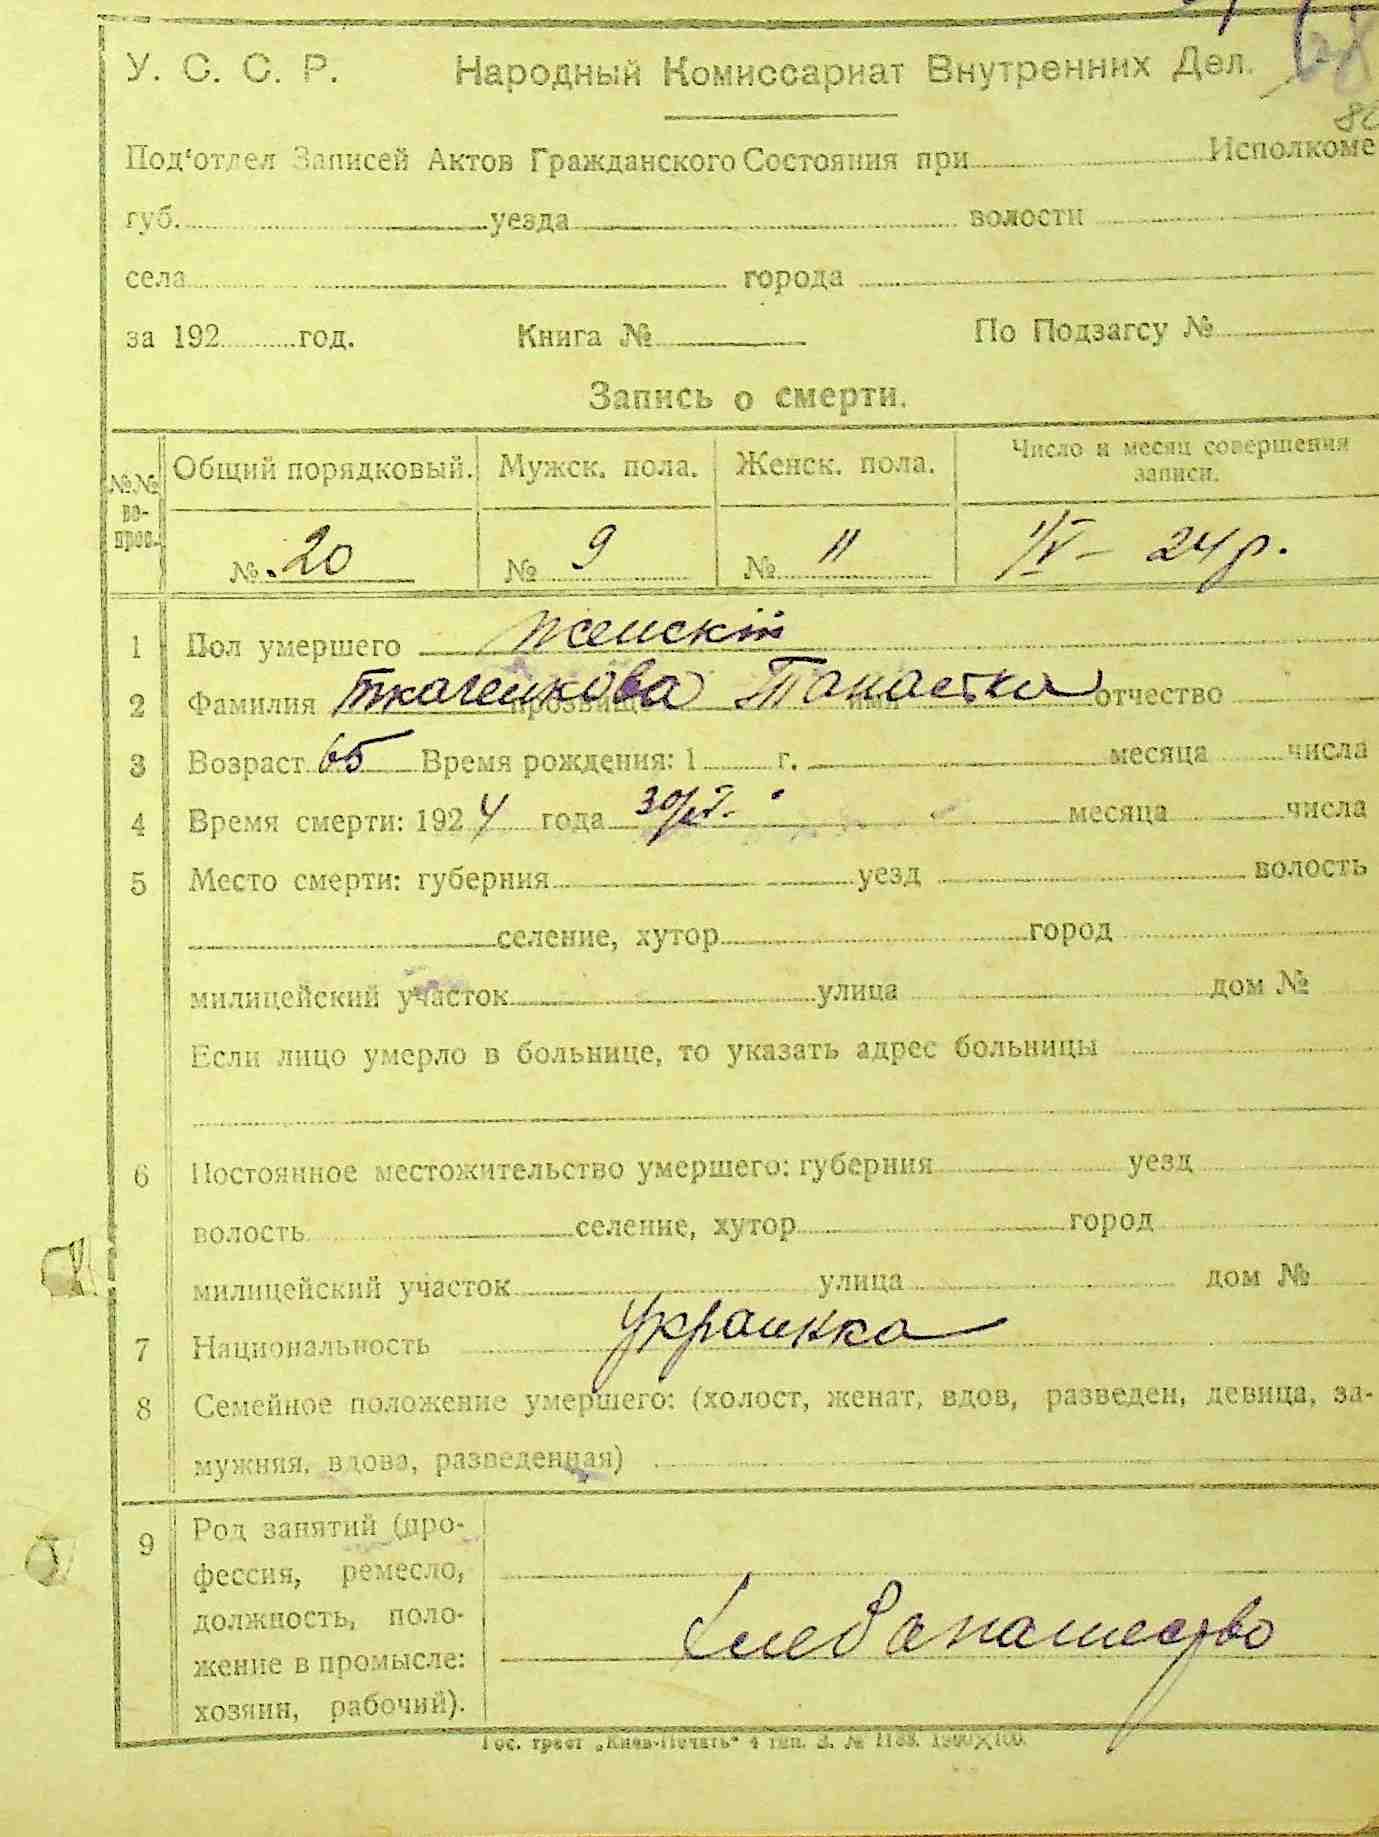 У. С. С. Р. Народный Комиссариат Внутренних Дел.
Под‘отдел Записей Актов Гражданского Состояния при Исполкоме
губ. уезда волости
села города
за 192 год. Книга № По Подзагсу №
Запись о смерти.
№№ во- прос. Общий порядковый. Мужск. пола. Женск. пола. Число и месяц совершения записи.
№ 20 № 9 № 11 1/V – 24 р.
1 Пол умершего женскій
2 Фамилия Ткаченкова прозвище имя отчество
3 Возраст 65 Время рождения: 1 г. месяца числа
4 Время смерти: 1924 года 30/IV месяца числа
5 Место смерти: губерния уезд волость
селение, хутор город
милицейский участок улица дом №
Если лицо умерло в больнице, то указать адрес больницы
6 Постоянное местожительство умершего: губерния уезд
волость селение, хутор город
милицейский участок улица дом №
7 Национальность Украинка
8 Семейное положение умершего: (холост, женат, вдов, разведен, девица, за-
мужняя, вдова, разведенная)
9 Род занятий (про-
фессия, ремесло,
должность, поло-
жение в промысле:
хозяин, рабочий).
Гос. трест „Киев-Печать“ 4 тип. З. № 1188. 1900×100.